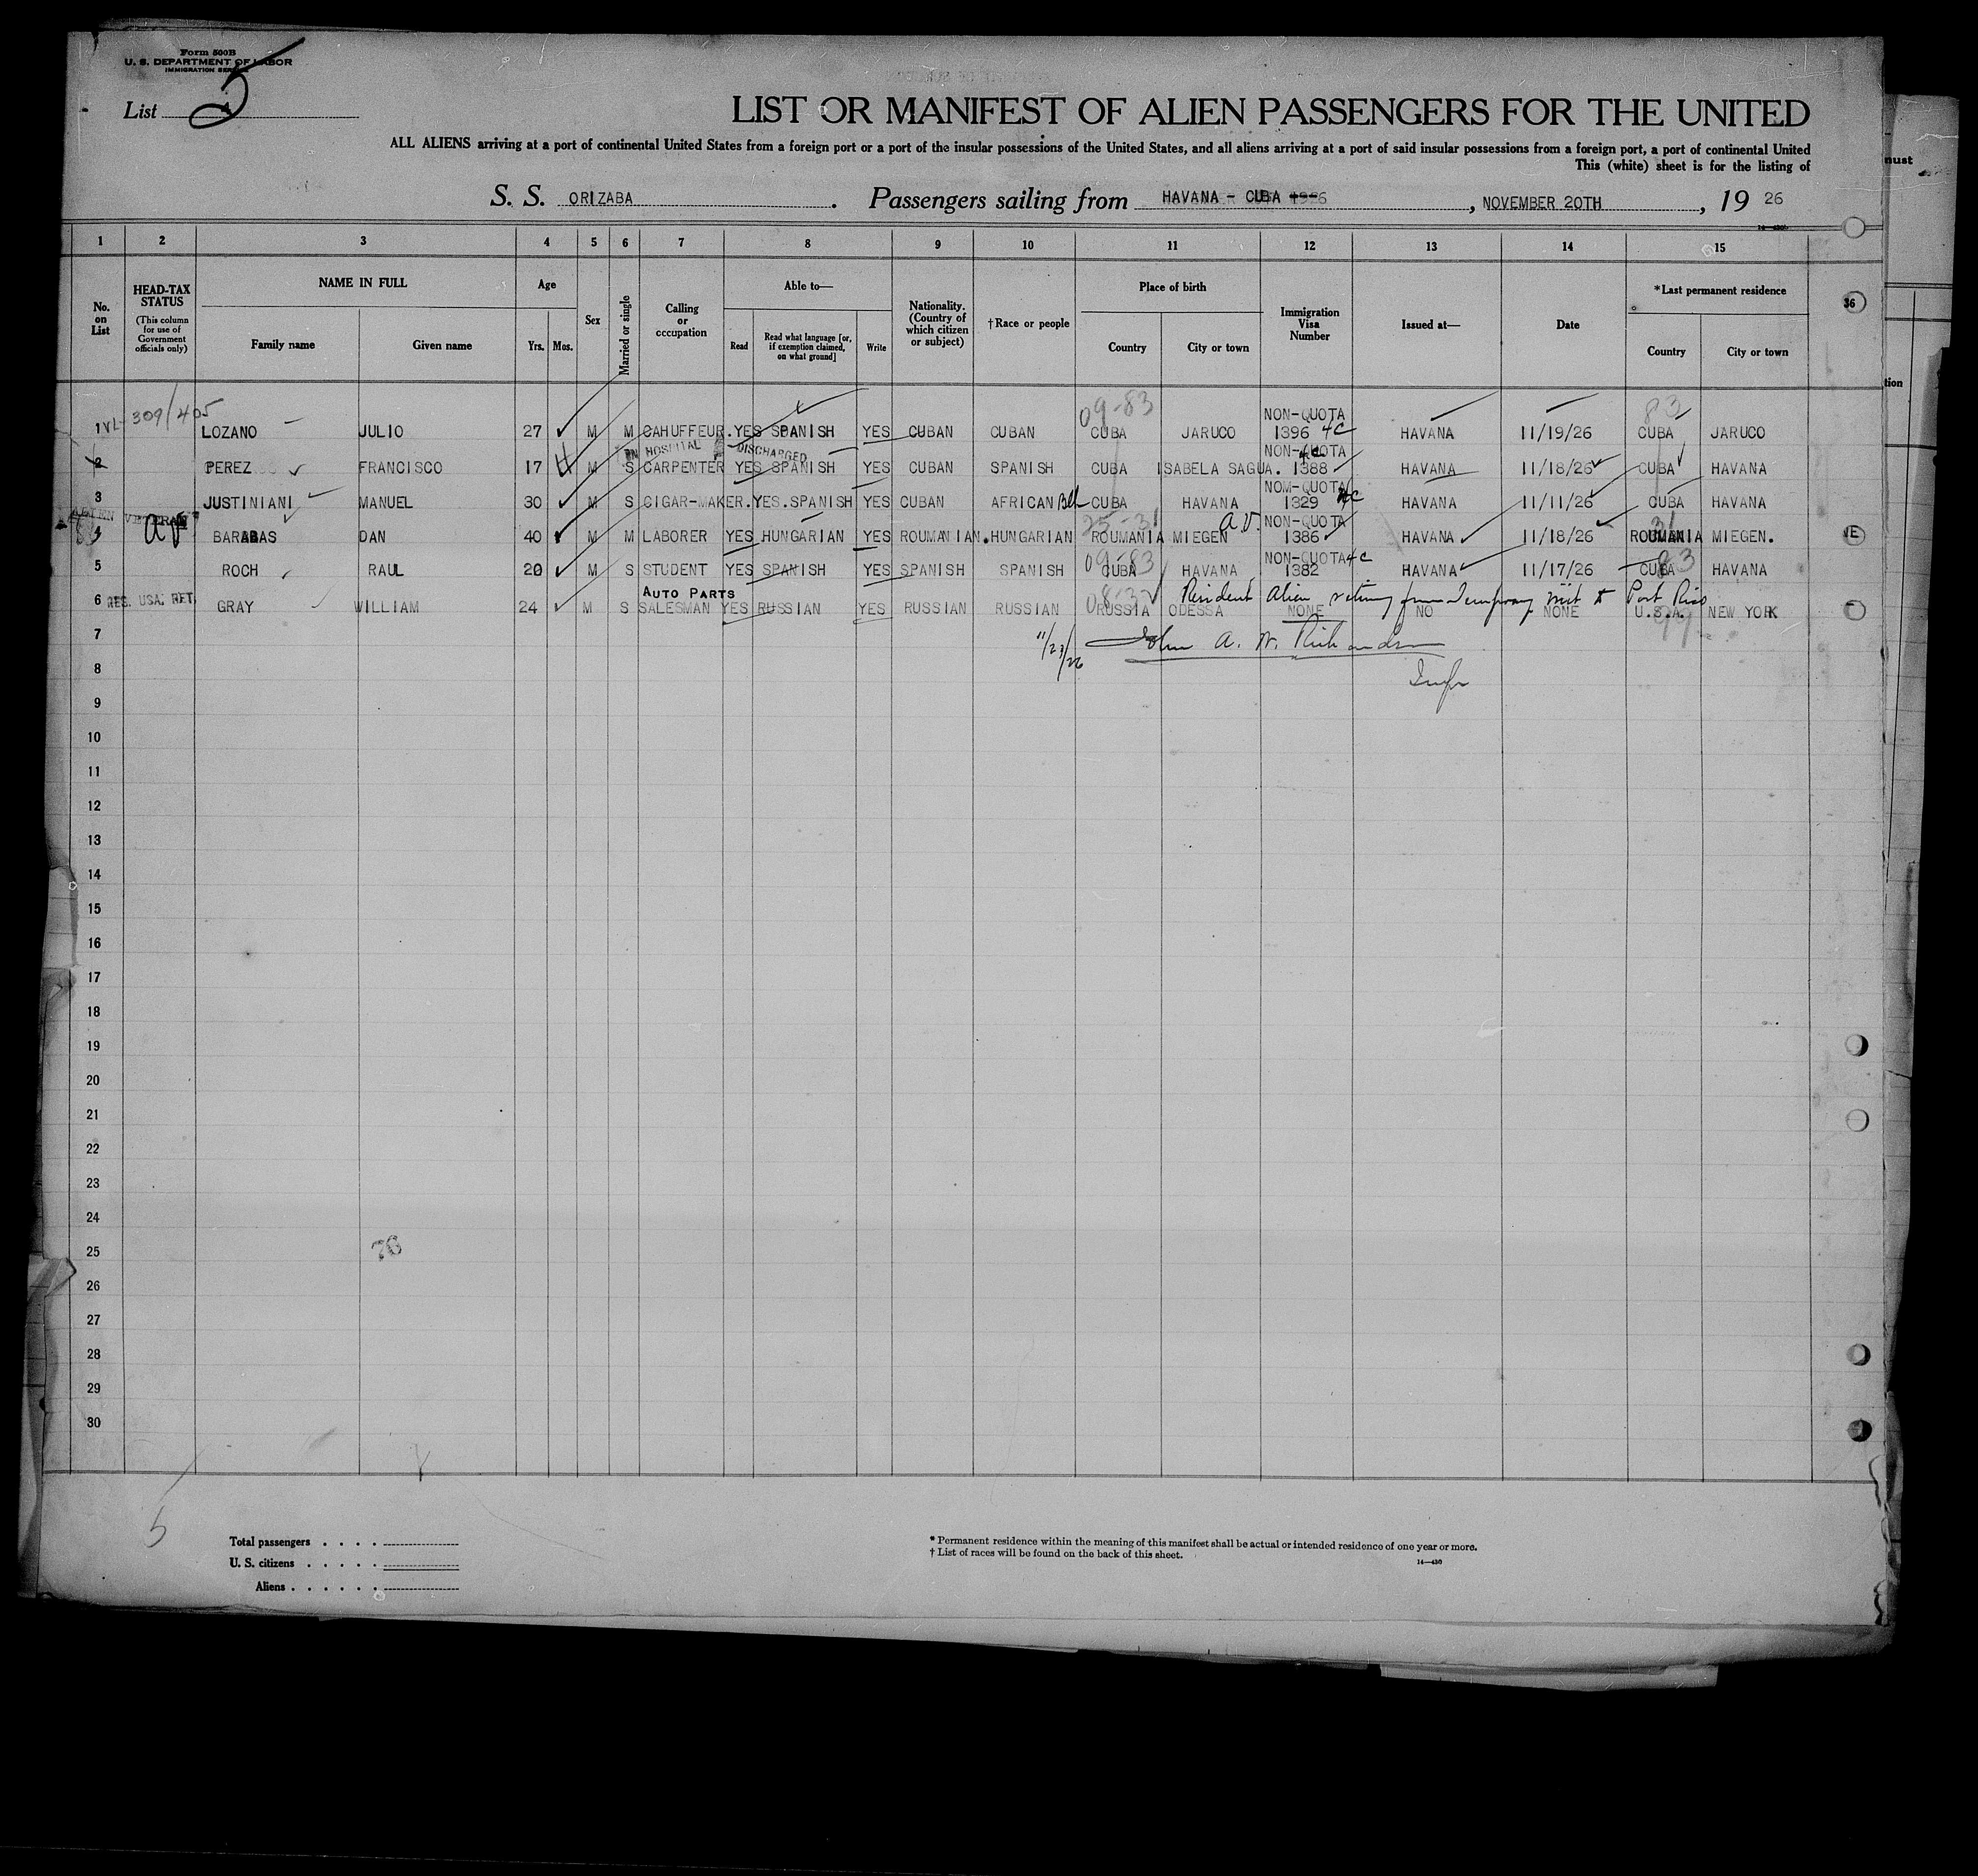 Form 500B
U. S. DEPARTMENT OF LABOR
IMMIGRATION SERVICE
List 5
LIST OR MANIFEST OF ALIEN PASSENGERS FOR THE UNITED
ALL ALIENS arriving at a port of continental United States from a foreign port or a port of the insular possessions of the United States, and all aliens arriving at a port of said insular possessions from a foreign port, a port of continental United
This (white) sheet is for the listing of
S. S. ORIZABA . Passengers sailing from HAVANA - CUBA , NOVEMBER 20TH , 19 26
1 2 3 4 5 6 7 8 9 10 11 12 13 14 15 36
No. on List
HEAD-TAX STATUS
(This column for use of Government officials only)
NAME IN FULL
Family name Given name
Age
Yrs. Mos.
Sex
Married or single
Calling or occupation
Able to—
Read Read what language [or, if exemption claimed, on what ground] Write
Nationality. (Country of which citizen or subject)
†Race or people
Place of birth
Country City or town
Immigration Visa Number
Issued at—
Date
*Last permanent residence
Country City or town
309/405 09-83 NON-QUOTA 83
1 LOZANO JULIO 27 M M CAHUFFEUR. YES SPANISH YES CUBAN CUBAN CUBA JARUCO 1396 4C HAVANA 11/19/26 CUBA JARUCO
IN HOSPITAL DISCHARGED NON-QUOTA
2 PEREZ FRANCISCO 17 M S CARPENTER YES SPANISH YES CUBAN SPANISH CUBA ISABELA SAGUA. 1388 HAVANA 11/18/26 CUBA HAVANA
NOM-QUOTA
3 JUSTINIANI MANUEL 30 M S CIGAR-MAKER. YES. SPANISH YES CUBAN AFRICAN Blk CUBA HAVANA 1329 4C HAVANA 11/11/26 CUBA HAVANA
ALIEN VETERAN av 25-31 a v. NON-QUOTA 31
4 BARABAS DAN 40 M M LABORER YES HUNGARIAN YES ROUMANIAN. HUNGARIAN ROUMANIA MIEGEN 1386 HAVANA 11/18/26 ROUMANIA MIEGEN.
09-83 NON-QUOTA 4C 83
5 ROCH RAUL 20 M S STUDENT YES SPANISH YES SPANISH SPANISH CUBA HAVANA 1382 HAVANA 11/17/26 CUBA HAVANA
RES. USA. RET. AUTO PARTS Resident Alien returning from temporary visit to Port Rico
6 GRAY WILLIAM 24 M S SALESMAN YES RUSSIAN YES RUSSIAN RUSSIAN RUSSIA ODESSA NONE NO NONE U.S.A. NEW YORK
7 11/23/26 John A. W. Richardson 99
8 Insp
9
10
11
12
13
14
15
16
17
18
19
20
21
22
23
24
25 76
26
27
28
29
30
5
Total passengers
U. S. citizens
Aliens
* Permanent residence within the meaning of this manifest shall be actual or intended residence of one year or more.
† List of races will be found on the back of this sheet.
14—430